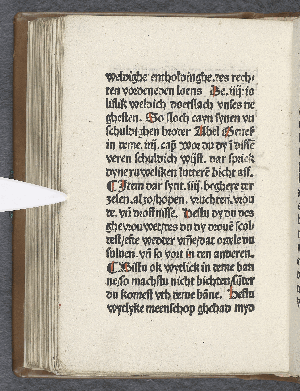 weldighe entholdinghe. des rech-
ten vordeneden loens De. iiij. is
liflik weldich doetslach vnses ne
ghesten. So sloch cayn synen vn
schuldighen broder Abel Genes
in deme. iiij. cap̄ wor du dy ī disse
veren schuldich wijst. dar sprek
dyneru welken luttere bicht ass.
Item dar synt. iiij. beghere der
zelen. alzo hopen. vruchten. vrou
de. vn̄ droffnisse. Hestu dy du des
ghevrouwet des du dy drouē scol
dest / efte wedder vm̄e / dat drucke du
suluen. vn̄ so vort in den anderen.
Bistu ok wytlick in deme ban
ne / so machstu nicht bichten / sūder
du komest vth deme bāne. Hestu
wytlyke meenschop ghehad myd